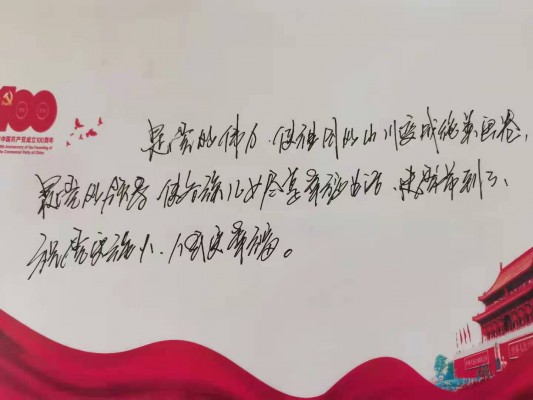 100
中国共产党成立100周年
100th Anniversary of the Founding of
The Communist Party of China
是党的伟力，使祖国的山川变成绝美画卷，
是党的领导，使各族儿女尽享幸福生活，
祝党更强大，人民更幸福。